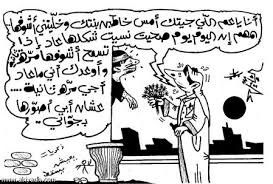 أنا يا عم اللي جيتك أمس خاطب بنتك وخليتني أشوفها
مهم إن اليوم يوم صحيت نسيت شكلها عاد إذا
تسمح أشوفها مرة
وأوعدك أني ما عاد
أجي مرة ثانية ....
عشان أبي أصورها
بجوالي .